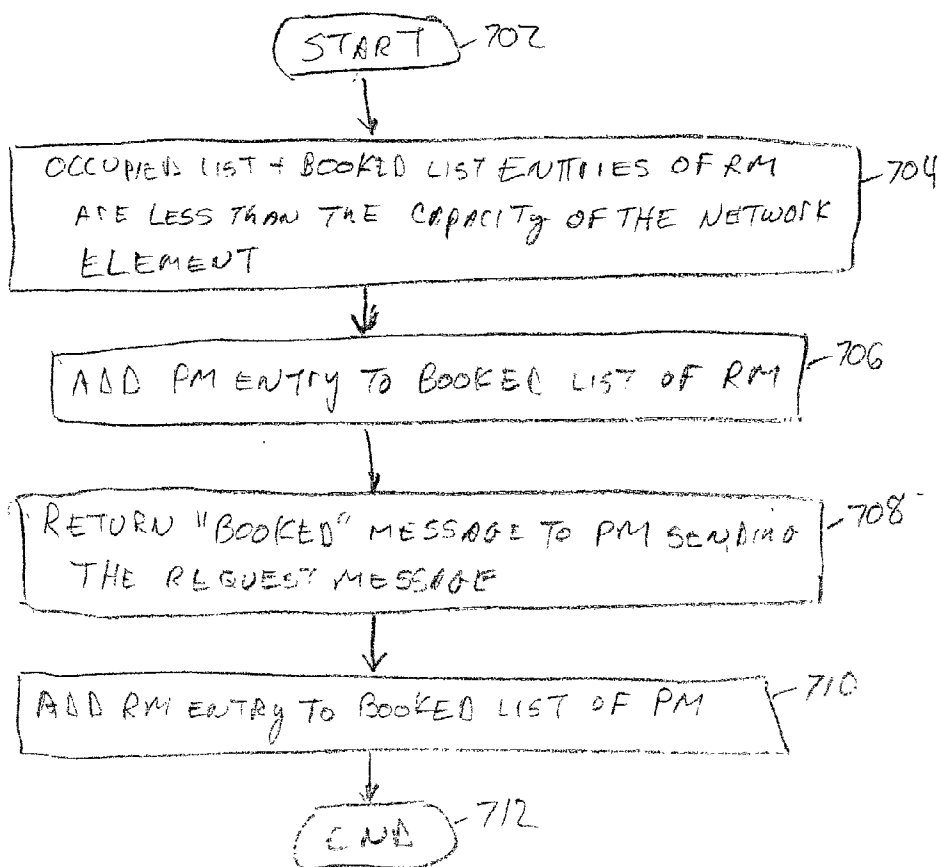 START 702
OCCUPIED LIST + BOOKED LIST ENTRIES OF RM 704
ARE LESS THAN THE CAPACITY OF THE NETWORK
ELEMENT
ADD PM ENTRY TO BOOKED LIST OF RM 706
RETURN "BOOKED" MESSAGE TO PM SENDING 708
THE REQUEST MESSAGE
ADD RM ENTRY TO BOOKED LIST OF PM 710
END 712